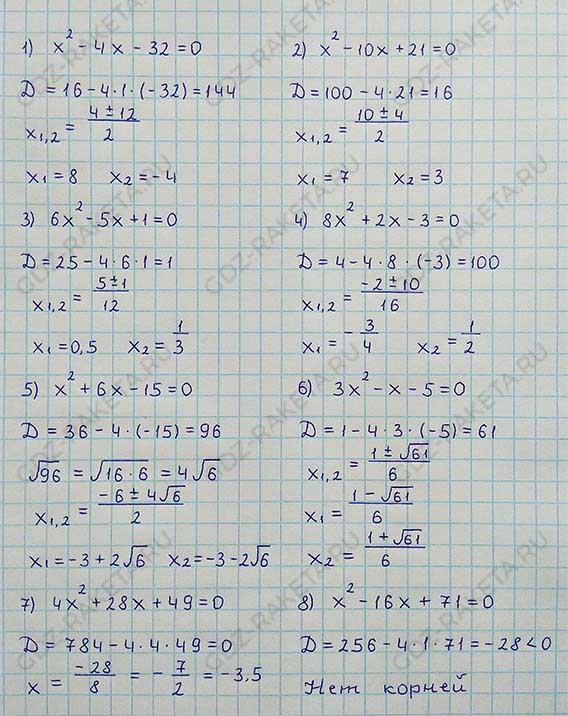 1) x² - 4x - 32 = 0
D = 16 - 4·1·(-32) = 144
x₁,₂ = (4 ± 12)/2
x₁ = 8 x₂ = -4
2) x² - 10x + 21 = 0
D = 100 - 4·21 = 16
x₁,₂ = (10 ± 4)/2
x₁ = 7 x₂ = 3
3) 6x² - 5x + 1 = 0
D = 25 - 4·6·1 = 1
x₁,₂ = (5 ± 1)/12
x₁ = 0,5 x₂ = 1/3
4) 8x² + 2x - 3 = 0
D = 4 - 4·8·(-3) = 100
x₁,₂ = (-2 ± 10)/16
x₁ = -3/4 x₂ = 1/2
5) x² + 6x - 15 = 0
D = 36 - 4·(-15) = 96
√96 = √(16·6) = 4√6
x₁,₂ = (-6 ± 4√6)/2
x₁ = -3 + 2√6 x₂ = -3 - 2√6
6) 3x² - x - 5 = 0
D = 1 - 4·3·(-5) = 61
x₁,₂ = (1 ± √61)/6
x₁ = (1 - √61)/6
x₂ = (1 + √61)/6
7) 4x² + 28x + 49 = 0
D = 784 - 4·4·49 = 0
x = -28/8 = -7/2 = -3,5
8) x² - 16x + 71 = 0
D = 256 - 4·1·71 = -28 < 0
Нет корней
GDZ-RAKETA.RU